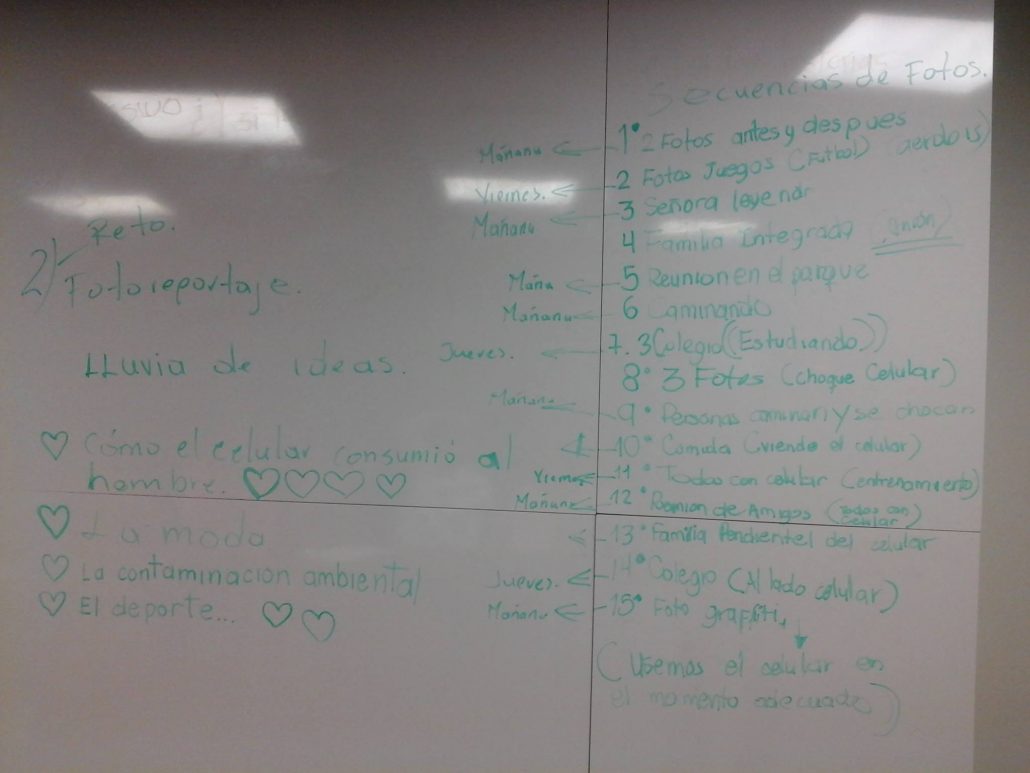 Reto.
2) Fotoreportaje.
LLuvia de ideas.
♡ Cómo el celular consumió al
hombre. ♡♡♡♡
♡ La moda
♡ La contaminación ambiental
♡ El deporte... ♡♡
Secuencias de Fotos.
Mañana ← 1° 2 Fotos antes y despues
Viernes. ← 2 Fotos Juegos (Futbol)
Mañana ← 3 Señora leyendo
4 Familia Integrada (unión)
Maña ← 5 Reunion en el parque
Mañana ← 6 Caminando
Jueves. ← 7. 3 Colegio (Estudiando))
8° 3 Fotos (choque Celular)
Mañana ← 9° Personas caminan y se chocan
← 10° Comida (viendo el celular)
Viernes ← 11° Todos con celular (entrenamiento)
Mañana ← 12° Reunion de Amigos (Todos con
celular)
← 13° Familia Pendiente del celular
Jueves. ← 14° Colegio (Al lado celular)
Mañana ← 15° Foto graffiti,
(Usemos el celular en
el momento adecuado)